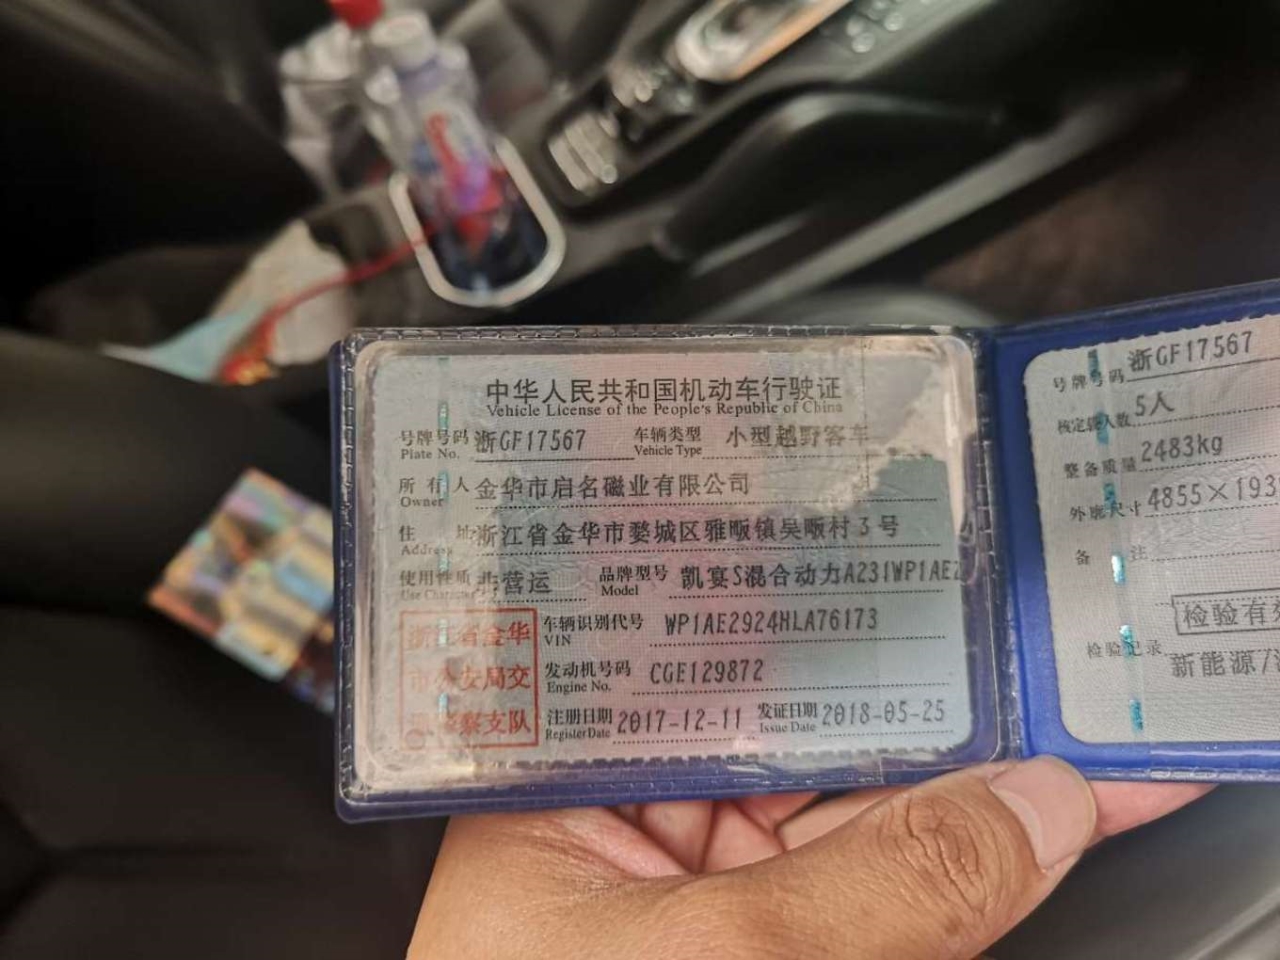 中华人民共和国机动车行驶证
Vehicle License of the People's Republic of China
号牌号码 浙GF17567 车辆类型 小型越野客车
Plate No. Vehicle Type
所有人 金华市启名磁业有限公司
Owner
住 址 浙江省金华市婺城区雅畈镇吴畈村3号
Address
使用性质 非营运 品牌型号 凯宴S混合动力A231WP1AE2
Use Character Model
浙江省金华
市公安局交
通警察支队
车辆识别代号 WP1AE2924HLA76173
VIN
发动机号码 CGE129872
Engine No.
注册日期 2017-12-11 发证日期 2018-05-25
Register Date Issue Date
号牌号码 浙GF17567
核定载人数 5人
整备质量 2483kg
外廓尺寸 4855×193
备 注
检验有
检验记录
新能源/